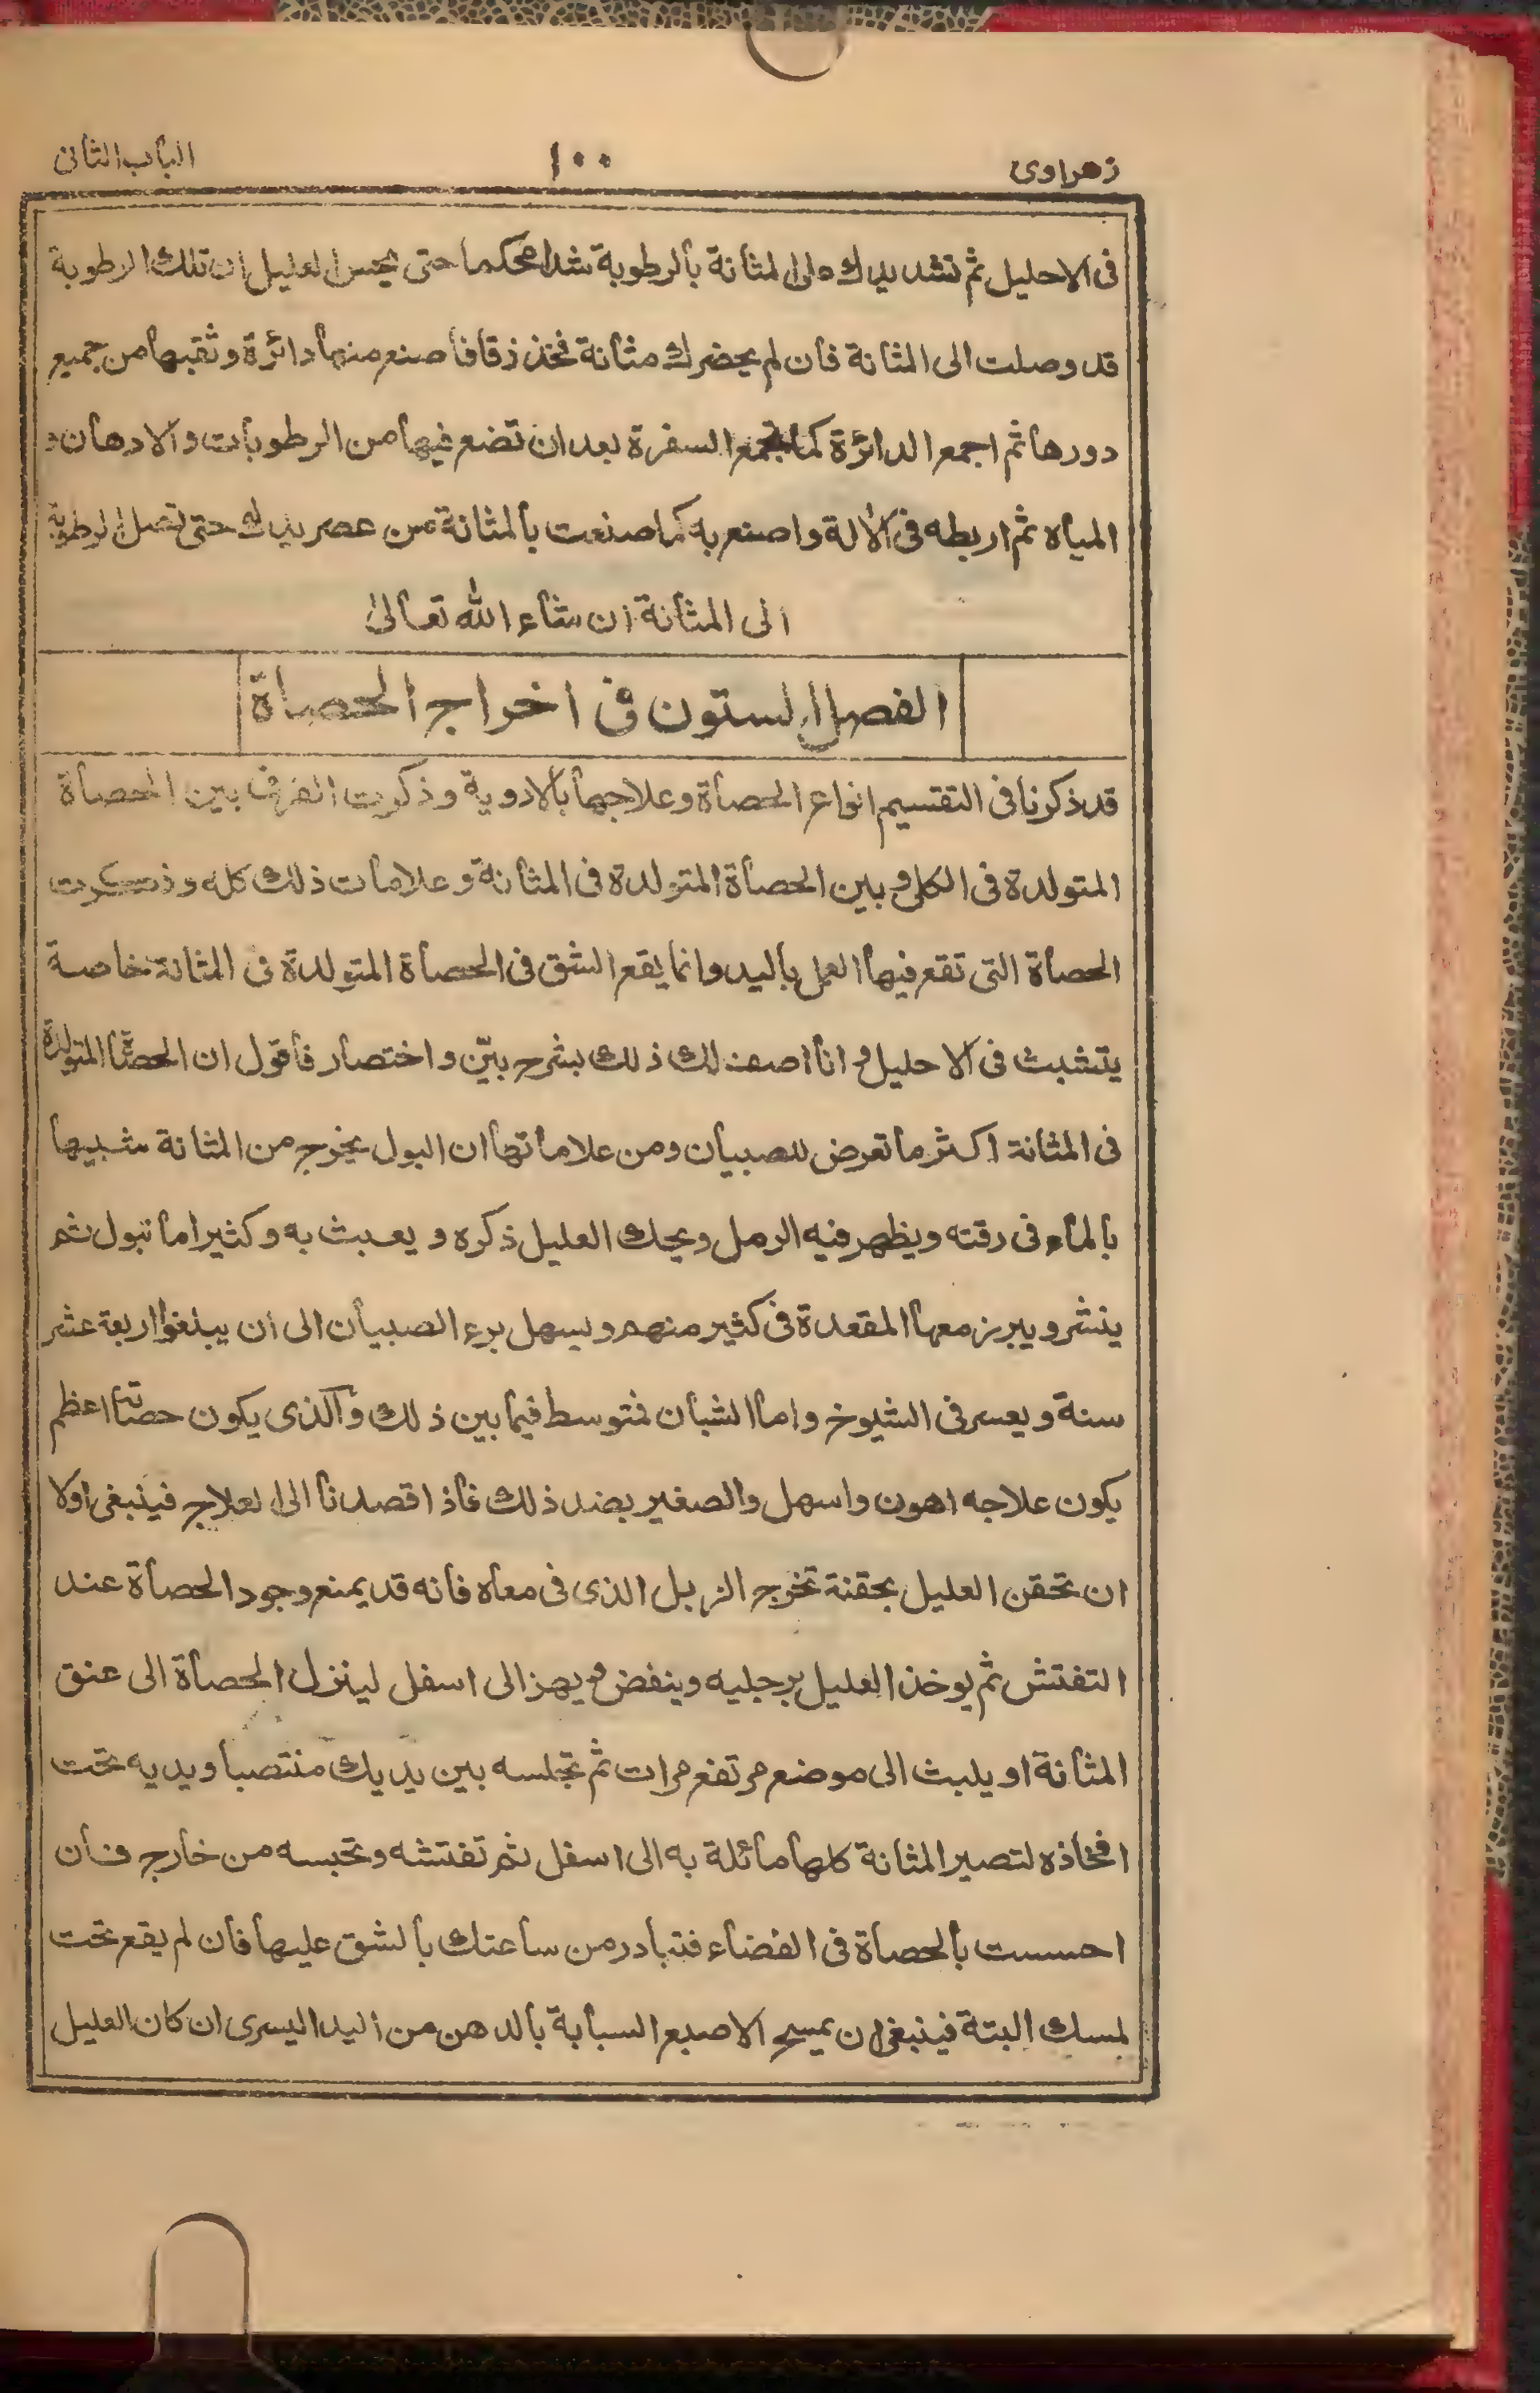 زهراوى ١٠٠ الباب الثانى
فى الاحليل ثم تشد يدك على المثانة بالرطوبة شدا محكما حتى يحس العليل ان تلك الرطوبة
قد وصلت الى المثانة فان لم يحضرك مثانة فخذ زقا فاصنع منها دائرة وثقبها من جميع
دورها ثم اجمع الدائرة كما تجمع السفرة بعد ان تضع فيها من الرطوبات والادهان و
المياه ثم اربطه فى الالة واصنع به كما صنعت بالمثانة من عصر يدك حتى تصل الرطوبة
الى المثانة ان شاء الله تعالى
الفصل الستون فى اخراج الحصاة
قد ذكرنا فى التقسيم انواع الحصاة وعلاجها بالادوية وذكرت الفرق بين الحصاة
المتولدة فى الكلى وبين الحصاة المتولدة فى المثانة وعلامات ذلك كله وذكرت
الحصاة التى تقع فيها العمل باليد وانما يقع الشق فى الحصاة المتولدة فى المثانة خاصة
يتشبث فى الاحليل و انا اصف لك ذلك بشرح بيّن و اختصار فاقول ان الحصاة المتولدة
فى المثانة اكثر ما تعرض للصبيان ومن علاماتها ان البول يخرج من المثانة شبيها
بالماء فى رقته ويظهر فيه الرمل ويحك العليل ذكره و يعبث به وكثيرا ما تبول ثم
ينشر ويبرز معها المقعدة فى كثير منهم ويسهل برء الصبيان الى ان يبلغوا اربعة عشر
سنة ويعسر فى الشيوخ واما الشبان فمتوسط فيما بين ذلك والذى يكون حصاته اعظم
يكون علاجه اهون واسهل والصغير بضد ذلك فاذا قصدنا الى العلاج فينبغى اولا
ان تحقن العليل بحقنة تخرج الزبل الذى فى معاه فانه قد يمنع وجود الحصاة عند
التفتش ثم يوخذ العليل برجليه وينفض و يهز الى اسفل لينزل الحصاة الى عنق
المثانة او يلبث الى موضع مرتفع مرات ثم تجلسه بين يديك منتصبا ويديه تحت
افخاذه لتصير المثانة كلها مائلة به الى اسفل ثم تفتشه وتحبسه من خارج فان
احسست بالحصاة فى الفضاء فتبادر من ساعتك بالشق عليها فان لم يقع تحت
لمسك البتة فينبغى ان يمسح الاصبع السبابة بالدهن من اليد اليسرى ان كان العليل